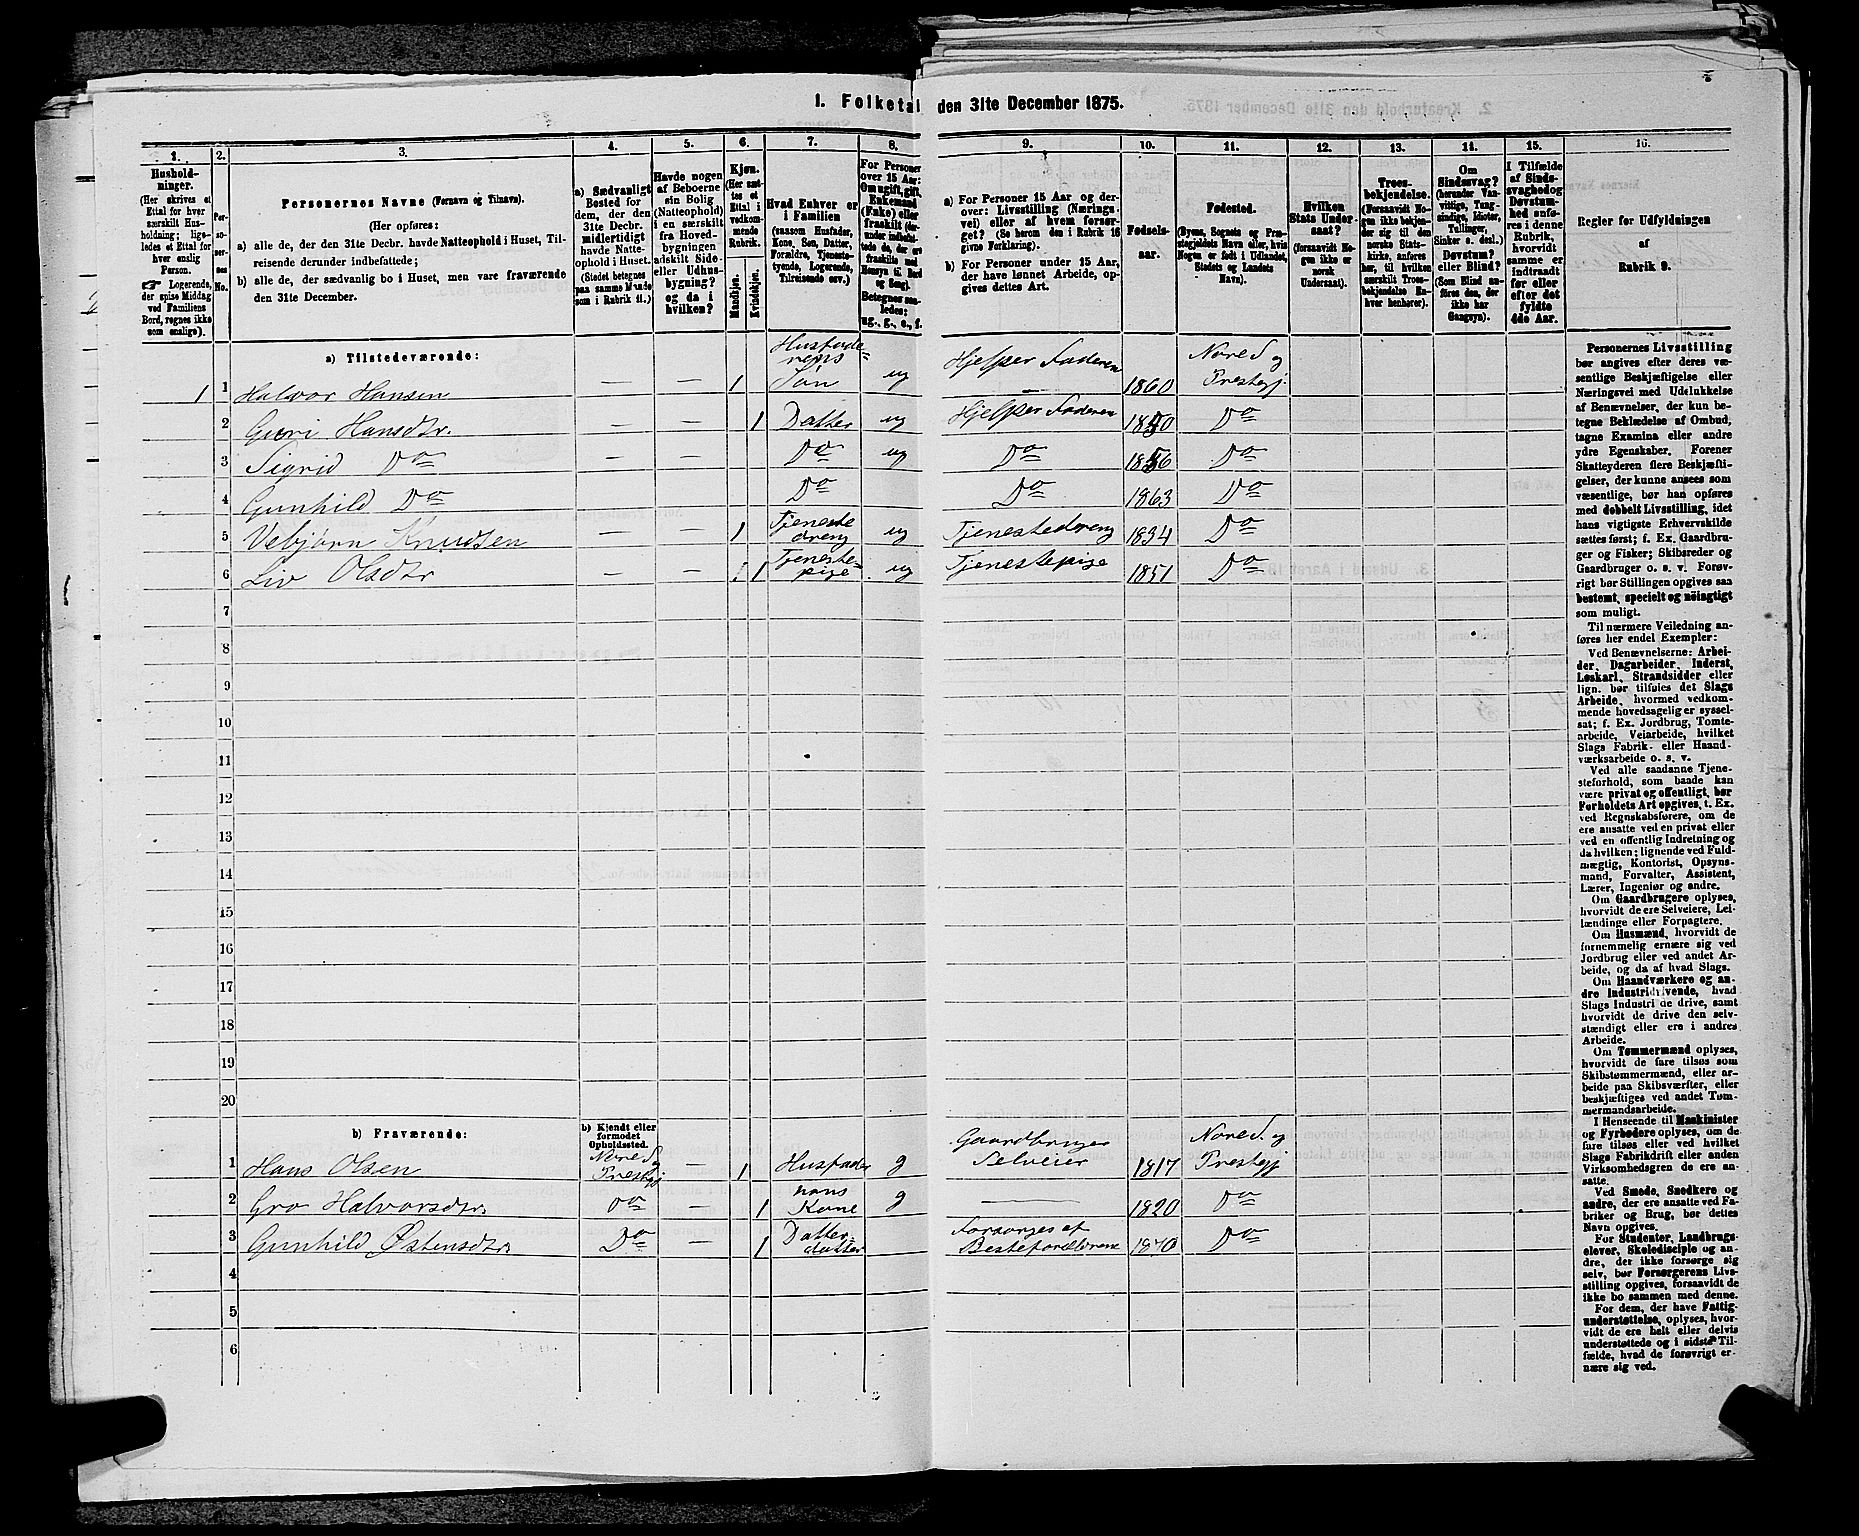 1. Folketal den 31te December 1875.
1.
Hushold-
ninger.
(Her skrives et
Ettal for hver
særskilt Hus-
holdning; lige-
ledes et Ettal for
hver enslig
Person.
☞ Logerende,
der spise Middag
ved Familiens
Bord, regnes ikke
som enslige).
2.
Per-
so-
ner-
nes
No.
3.
Personernes Navne (Fornavn og Tilnavn).
(Her opføres:
a) alle de, der den 31te Decbr. havde Natteophold i Huset, Til-
reisende derunder indbefattede;
b) alle de, der sædvanlig bo i Huset, men vare fraværende
den 31te December.
4.
a) Sædvanligt
Bosted for
dem, der den
31te Decbr.
midlertidigt
havde Natte-
ophold i Huset.
(Stedet betegnes
paa samme Maade
som i Rubrik 11.)
5.
Havde nogen
af Beboerne
sin Bolig
(Natteophold)
i en særskilt
fra Hoved-
bygningen
adskilt Side-
eller Udhus-
bygning?
og da i
hvilken?
6.
Kjøn.
(Her sæt-
tes et
Ettal i
vedkom-
mende
Rubrik.
Mandkjøn.
Kvindekjøn.
7.
Hvad Enhver er
i Familien
(saasom Husfader,
Kone, Søn, Datter,
Forældre, Tjeneste-
tyende, Logerende,
Tilreisende osv.)
8.
For Personer
over 15 Aar:
Om ugift, gift,
Enkemand
(Enke) eller
fraskilt (der-
under indbefat-
tede de, der ere
fraskilte med
Hensyn til Bord
og Seng).
Betegnes saa-
ledes:
ug., g., e., f.
9.
a) For Personer 15 Aar og der-
over: Livsstilling (Nærings-
vei) eller af hvem forsør-
get? (Se herom den i Rubrik 16
givne Forklaring).
b) For Personer under 15 Aar,
der have lønnet Arbeide, op-
gives dettes Art.
10.
Fødsels-
aar.
11.
Fødested.
(Byens, Sognets og Præ-
stegjeldets Navn eller, hvis
Nogen er født i Udlandet,
Stedets og Landets
Navn).
12.
Hvilken
Stats Under-
saat?
(forsaavidt No-
gen ikke er
norsk
Undersaat).
13.
Troes-
bekjendelse.
(Forsaavidt No-
gen ikke bekjen-
der sig til den
norske Stats-
kirke, anføres
her, til hvilken
særskilt Troes-
bekjendelse En-
hver henhører).
14.
Om
Sindssvag?
(herunder Van-
vittige, Tung-
sindige, Idioter,
Tullinger,
Sinker o. desl.)
Døvstum?
eller Blind?
(Som Blind an-
føres den, der
ikke har
Gangsyn).
15.
I Tilfælde
af Sinds-
svaghed og
Døvstum-
hed anfø-
res i denne
Rubrik,
hvorvidt
samme er
indtraadt
før eller
efter det
fyldte
4de Aar.
16.
Regler for Udfyldningen
af
Rubrik 9.
a) Tilstedeværende:
1 1 Halvor Hansen — — 1 Husfade-
rens
Søn ug Hjelper Faderen
— 1860 Nore S og
Prestegj.
2 Guri Hansdtr. — — 1 Datter ug Hjelper Faderen 1850 Do
3 Sigrid Do — — Do ug Do 1856 Do
4 Gunhild Do Do Do 1863 Do
5 Vebjørn Knudsen — — 1 Tjeneste
dreng ug Tjenestedreng 1854 Do
6 Liv Olsdtr — — 1 Tjeneste-
pige ug Tjenestepige 1851 Do
7
8
9
10
11
12
13
14
15
16
17
18
19
20
b) Fraværende:
b) Kjendt eller
formodet
Opholdssted.
1 Hans Olsen Nore S og
Prestegj — 1 Husfader g Gaardbruger
Selveier 1817 Nore S. og
Prestegj
2 Gro Halvorsdtr. Do — 1 hans
Kone g — 1820 Do
3 Gunhild Østensdtr. Do — 1 Datter-
datter Forsørges af
Besteforældrene 1870 Do
4
5
6
Personernes Livsstilling
bør angives efter deres væ-
sentlige Beskjæftigelse eller
Næringsvei med Udelukkelse
af Benævnelser, der kun be-
tegne Beklædelse af Ombud,
tagne Examina eller andre
ydre Egenskaber. Forener
Skatteyderen flere Beskjæfti-
gelser, der kunne ansees som
væsentlige, bør han opføres
med dobbelt Livsstilling, idet
hans vigtigste Erhvervskilde
sættes først; f. Ex. Gaardbru-
ger og Fisker; Skibsreder og
Gaardbruger o. s. v. Forøv-
rigt bør Stillingen opgives saa
bestemt, specielt og nøiagtigt
som muligt.
Til nærmere Veiledning an-
føres her endel Exempler:
Ved Benævnelserne: Arbei-
der, Dagarbeider, Inderst,
Løskarl, Strandsidder eller
lign. bør tilføies det Slags
Arbeide, hvormed vedkom-
mende hovedsagelig er syssel-
sat; f. Ex. Jordbrug, Tomte-
arbeide, Veiarbeide, hvilket
Slags Fabrik- eller Haand-
værksarbeide o. s. v.
Ved alle saadanne Tjene-
steforhold, som baade kan
være privat og offentligt, bør
Forholdets Art opgives, t. Ex.
ved Regnskabsførere, om de
ere ansatte ved en privat eller
ved en offentlig Indretning og
da hvilken; lignende ved Fuld-
mægtig, Kontorist, Opsyns-
mand, Forvalter, Assistent,
Lærer, Ingeniør og andre.
Om Gaardbrugere oplyses,
hvorvidt de ere Selveiere, Lei-
lændinge eller Forpagtere.
Om Husmænd, hvorvidt de
fornemmelig ernære sig ved
Jordbrug eller ved andet Ar-
beide, og da af hvad Slags.
Om Haandværkere og an-
dre Industridrivende, hvad
Slags Industri de drive, samt
hvorvidt de drive den selv-
stændigt eller ere i andres
Arbeide.
Om Tømmermænd oplyses,
hvorvidt de fare tilsøs som
Skibstømmermænd, eller ar-
beide paa Skibsværfter, eller
beskjæftiges ved andet Tøm-
mermandsarbeide.
I Henseende til Maskinister
og Fyrbødere oplyses, om de
fare tilsøs eller ved hvilket
Slags Fabrikdrift eller anden
Virksomhedsgren de ere an-
satte.
Ved Smede, Snedkere og
andre, der ere ansatte ved Fa-
briker og Brug, bør dettes
Navn opgives.
For Studenter, Landbrugs-
elever, Skoledisciple og an-
dre, der ikke forsørge sig
selv, bør Forsørgerens Livs-
stilling opgives, forsaavidt de
ikke bo sammen med denne.
For dem, der have Fattig-
understøttelse, oplyses, hvor-
vidt de ere helt eller delvis
understøttede og i sidste Til-
fælde, hvad de forøvrigt er-
nære sig ved.